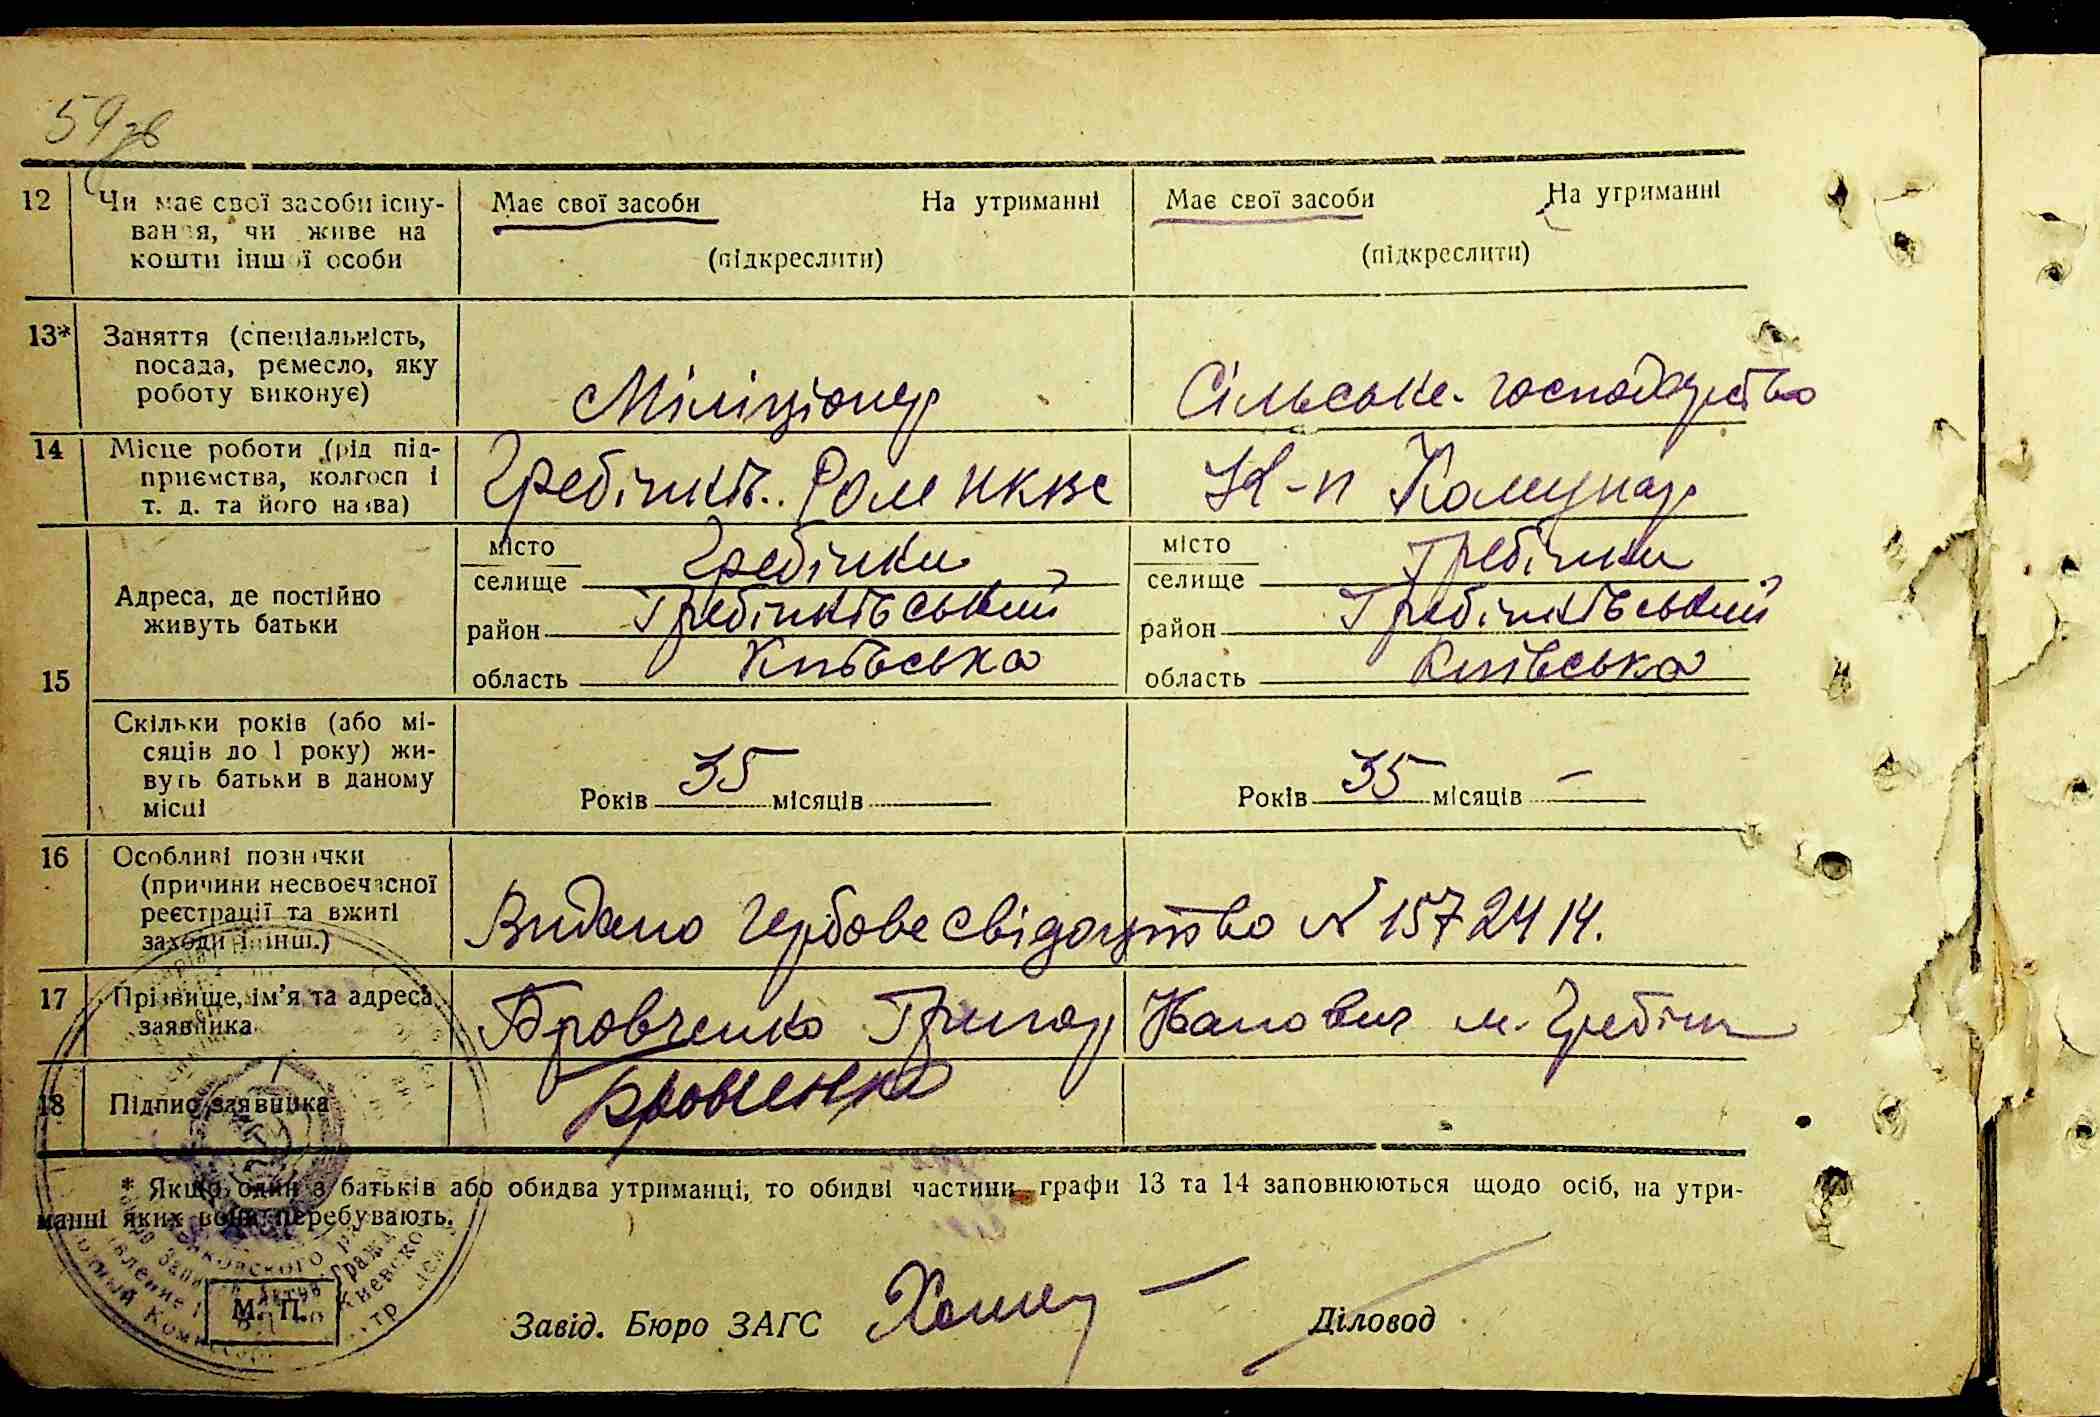 59зв
12 Чи має свої засоби існу-
вання, чи живе на
кошти іншої особи
Має свої засоби На утриманні
(підкреслити)
Має свої засоби На утриманні
(підкреслити)
13* Заняття (спеціальність,
посада, ремесло, яку
роботу виконує)
Міліціонер
Сільське-господарство
14 Місце роботи (рід під-
приємства, колгосп і
т. д. та його назва)
Гребінків. Ром НКВС
К-п Комунар
15 Адреса, де постійно
живуть батьки
місто
селище Гребінки
район Гребінківський
область Київська
місто
селище Гребінки
район Гребінківський
область Київська
Скільки років (або мі-
сяців до 1 року) жи-
вуть батьки в даному
місці
Років 35 місяців
Років 35 місяців —
16 Особливі познички
(причини несвоєчасної
реєстрації та вжиті
заходи і інш.)
Видано гербове свідоцтво № 1572414.
17 Прізвище, ім'я та адреса
заявника
Бровченко Григор Іванович м. Гребінки
18 Підпис заявника
Бровченко
* Якщо один з батьків або обидва утриманці, то обидві частини графи 13 та 14 заповнюються щодо осіб, на утри-
манні яких вони перебувають.
М. П.
Завід. Бюро ЗАГС
Діловод